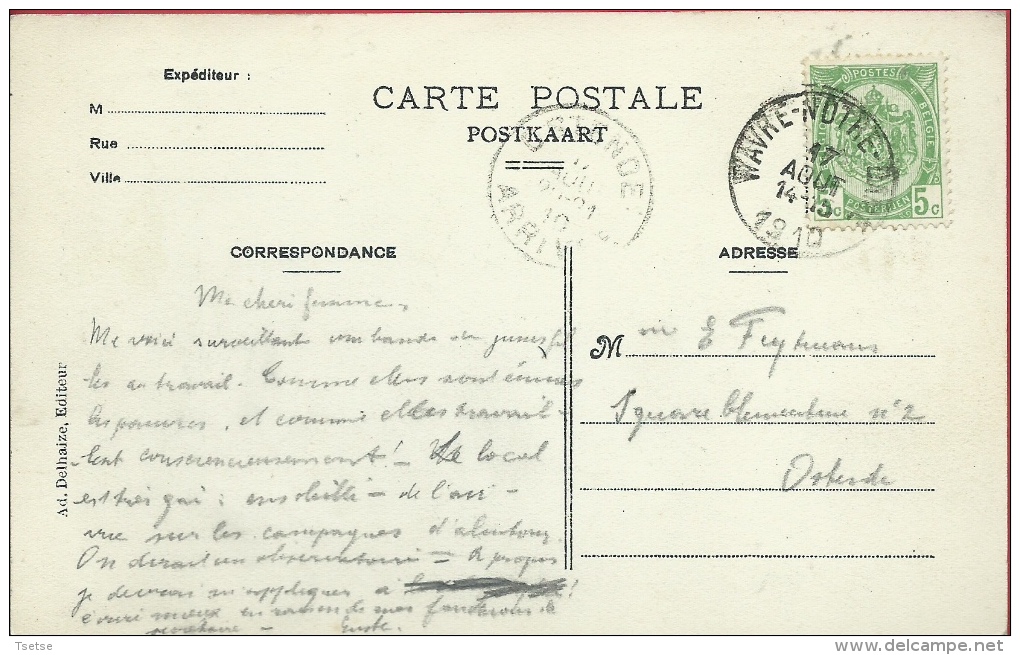 Expéditeur :
M
Rue
Ville
CARTE POSTALE
POSTKAART
WAVRE-NOTRE-D
17
AOUT
14-15
1910
POSTES
BELGIQUE
5c
OSTENDE
AOUT
10
ARRIVÉE
CORRESPONDANCE
ADRESSE
Ma cheri femme,
Me voici surveillant une bande de jeunes fil
les au travail. Comme elles sont émues
les pauvres, et comme elles travail-
lent consciencieusement! - Le local
est très gai : ensoleillé - de l'air -
vue sur les campagnes d'alentour.
On dirait un observatoire - A propos
je devrais m'appliquer à
écrire mieux en raison de mes fonctions de
secrétaire -
M
E Feytmans
Square Clémentine n° 2
Ostende
Ad. Delhaize, Editeur
Tsetse
delcampe.net